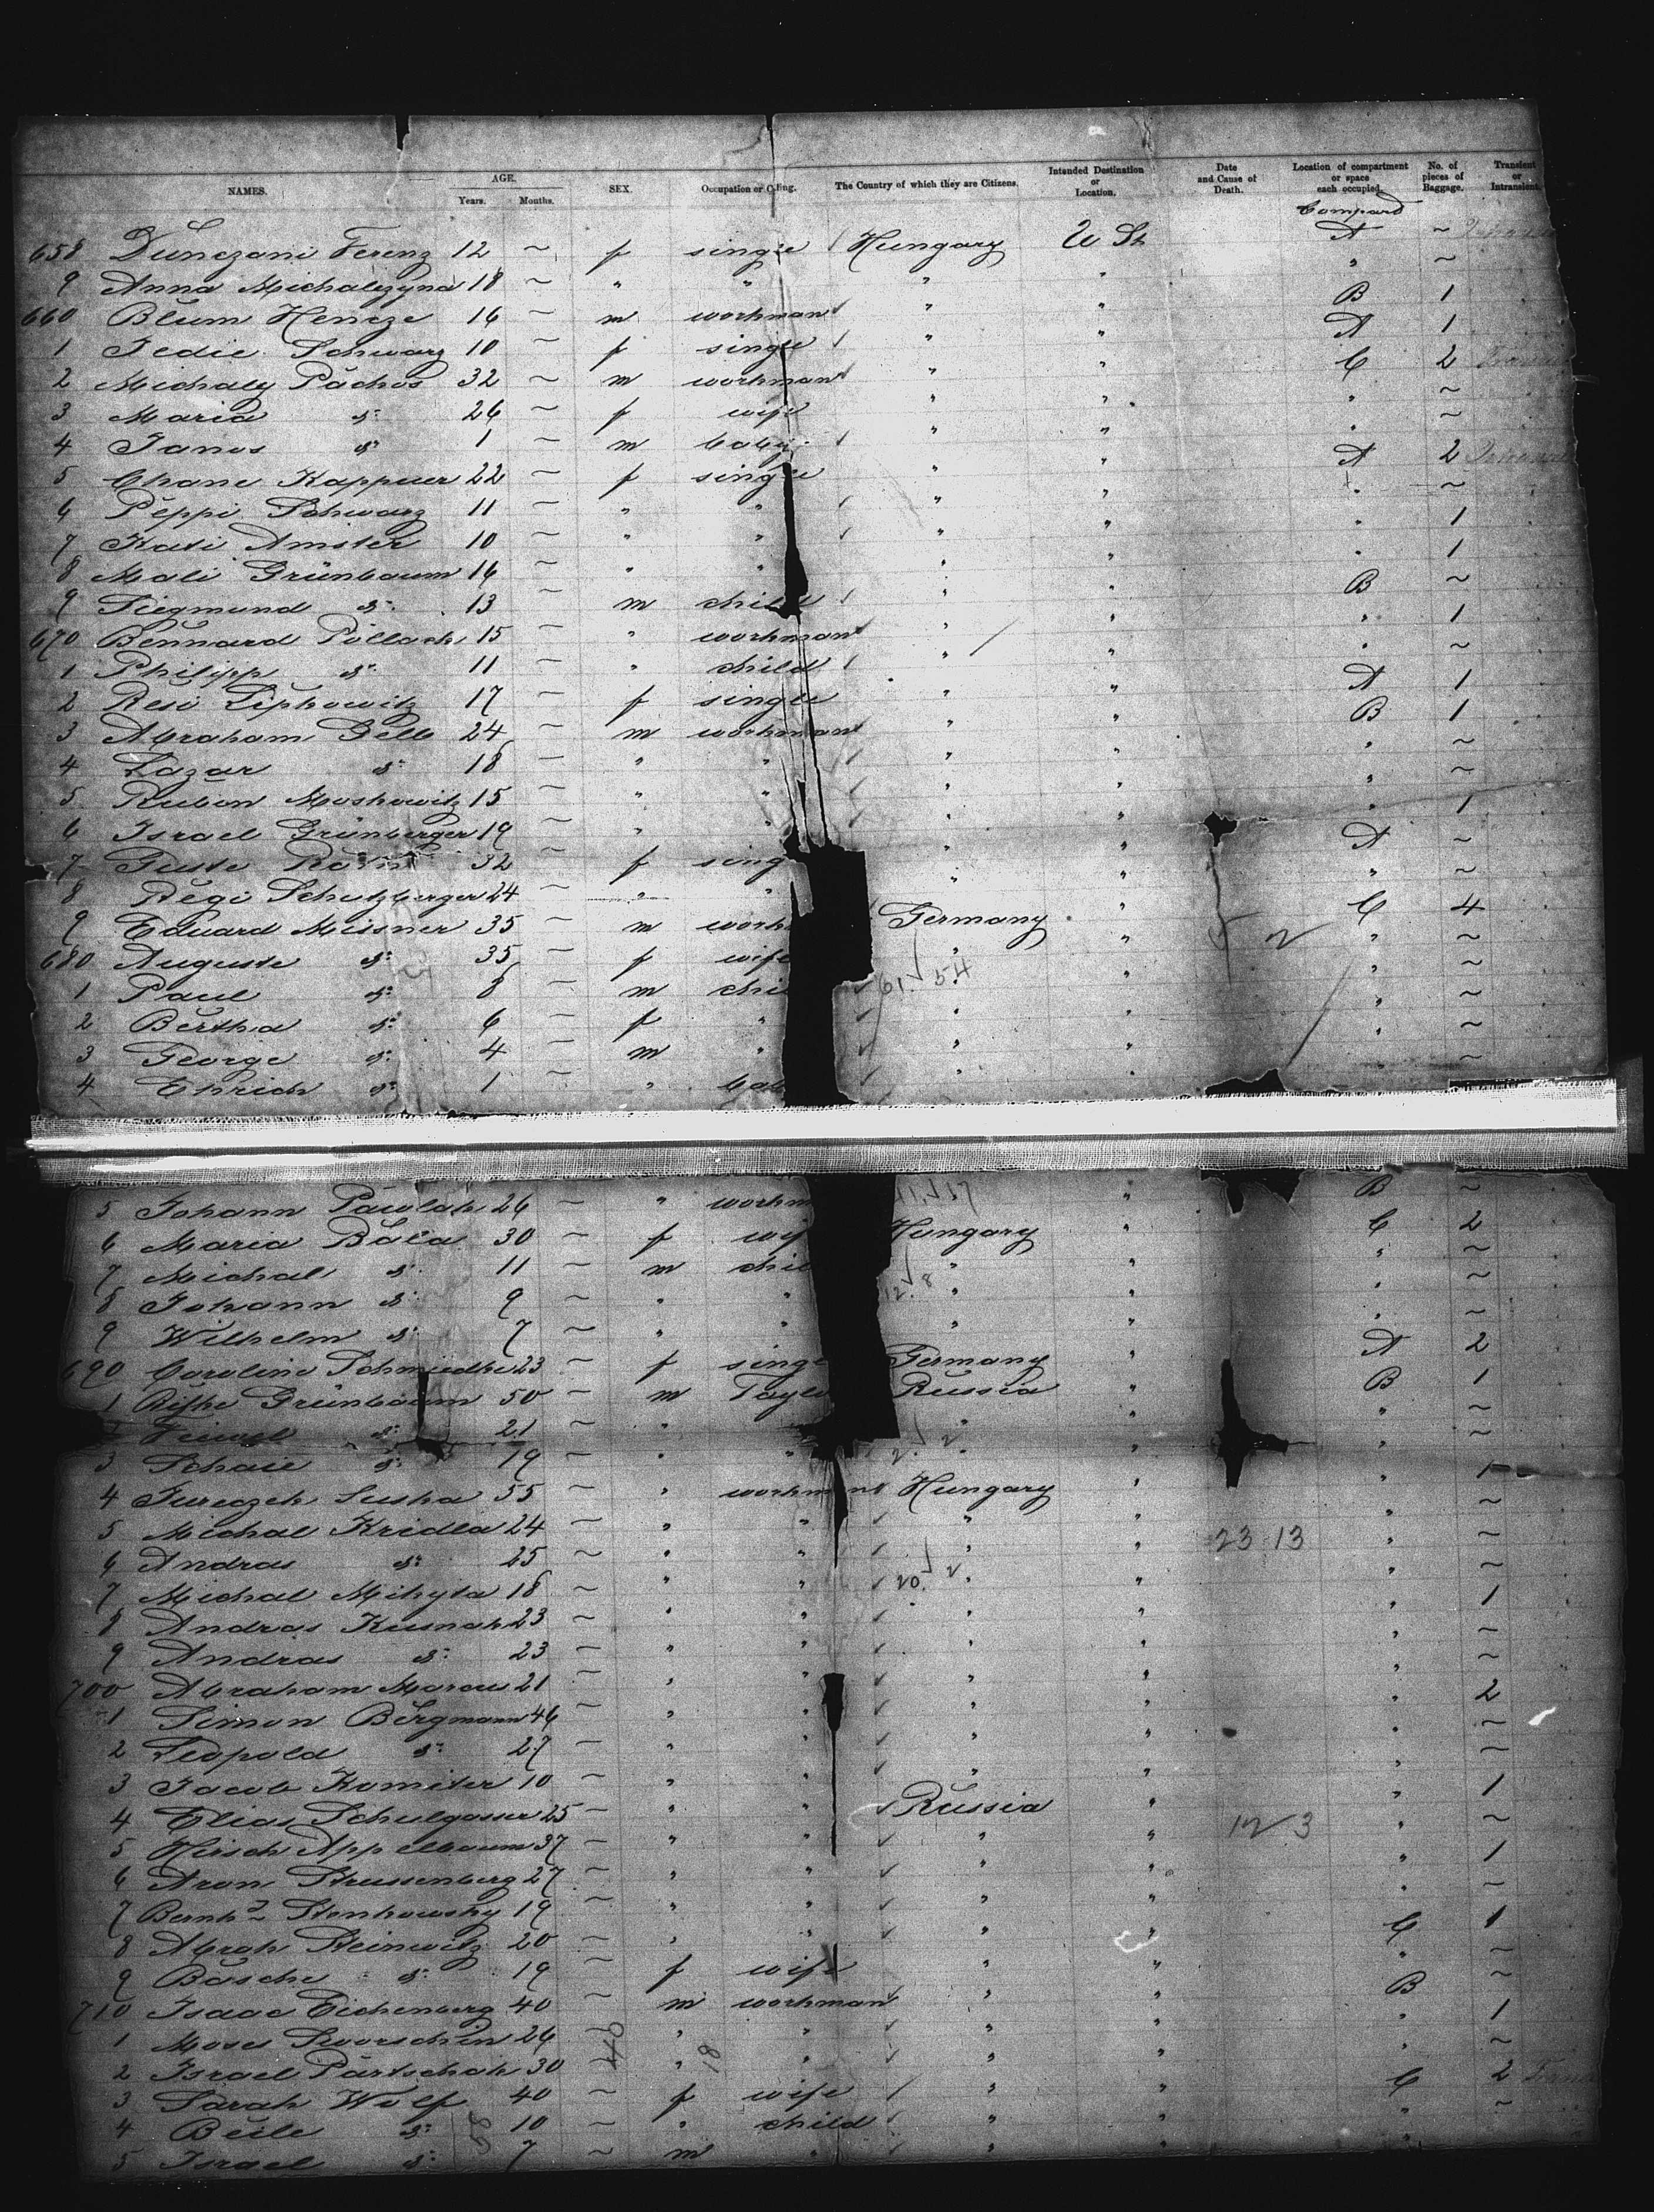 NAMES. AGE. Years. Months. SEX Occupation or Calling. The Country of which they are Citizens. Intended Destination or Location. Date and Cause of Death. Location of compartment or space each occupied. No. of pieces of Baggage. Transient or Intransient
Compard
658 Ferenz 12 ~ f single Hungary U St A ~
9 Anna 18 ~ " " " " " ~
660 Blum 16 ~ m workman " " B 1
1 Schwarz 10 ~ f single " " A 1
2 Michaly Pachos 32 ~ m workman " " C 2
3 Maria do 26 ~ f wife " " " ~
4 Janos do 1 ~ m baby " " " ~
5 Chane 22 ~ f single " " A 2
6 Peppi Schwarz 11 ~ " " " " " ~
7 Kati Amster 10 ~ " " " " " 1
8 Mali Grünbaum 16 ~ " " " " " 1
9 Siegmund do 13 ~ m child " " B ~
670 Bernnard Pollack 15 ~ " workman " " " 1
1 Philipp do 11 ~ " child " " " ~
2 Resi Lipkowitz 17 ~ f single " " A 1
3 Abraham Gelb 24 ~ m workman " " B 1
4 Lazar do 18 ~ " " " " " ~
5 Rubin Moskowitz 15 ~ " " " " " ~
6 Israel Grünberger 19 ~ " " " " " 1
7 Guste 32 ~ f sing " " A ~
8 Regi Schutzberger 24 ~ " " " " " ~
9 Eduard Missner 35 ~ m work Germany " C 4
680 Auguste do 35 ~ f wife " " " ~
1 Paul do 8 ~ m chi " " " ~
2 Bertha do 6 ~ f " " " " ~
3 George do 4 ~ m " " " " ~
4 Ehrich do 1 ~ " bab " " ~
5 Johann Pawlak 26 ~ " workm " B ~
6 Maria Bala 30 ~ f wif Hungary " C 2
7 Michal do 11 ~ m chil " " " ~
8 Johann do 9 ~ " " " " " ~
9 Wilhelm do 7 ~ " " " " " ~
690 Caroline Schmiedke 23 ~ f sing Germany " A 2
1 Rifke Grünbaum 50 ~ m Taylo Russia " B 1
Feiwel do 21 ~ " " " " ~
3 Schaie do 19 ~ " " " " ~
4 Sucha 55 ~ " workman Hungary " " 1
5 Michal Kridla 24 ~ " " " " " ~
6 Andras do 25 ~ " " " " 23 13 " ~
7 Michal 18 ~ " " " " " ~
8 Andras Kusnak 23 ~ " " " " " 1
9 Andras do 23 ~ " " " " " ~
700 Abraham Marcus 21 ~ " " " " " ~
1 Simon Bergmann 46 ~ " " " " " 2
2 Leopold do 27 ~ " " " " " ~
3 Jacob Komiter 10 ~ " " " " " ~
4 Elias Schulgasser 25 ~ " " Russia " " 1
5 Hirsch Appelbaum 37 ~ " " " " " ~
6 Aron Strussenberg 27 ~ " " " " " 1
7 Bernhd Stenkowsky 19 ~ " " " " " ~
8 Abrah Steinwitz 20 ~ " " " " C 1
9 Basche do 19 ~ f wife " " " ~
710 Isaac Eichenberg 40 ~ m workman " " B ~
1 Moses 26 ~ " " " " " 1
2 Israel Partschak 30 ~ " " " " " ~
3 Sarah Wolf 40 ~ f wife " " C 2
4 Beile do 10 ~ " child " " " ~
5 Israel do 7 ~ m " " "